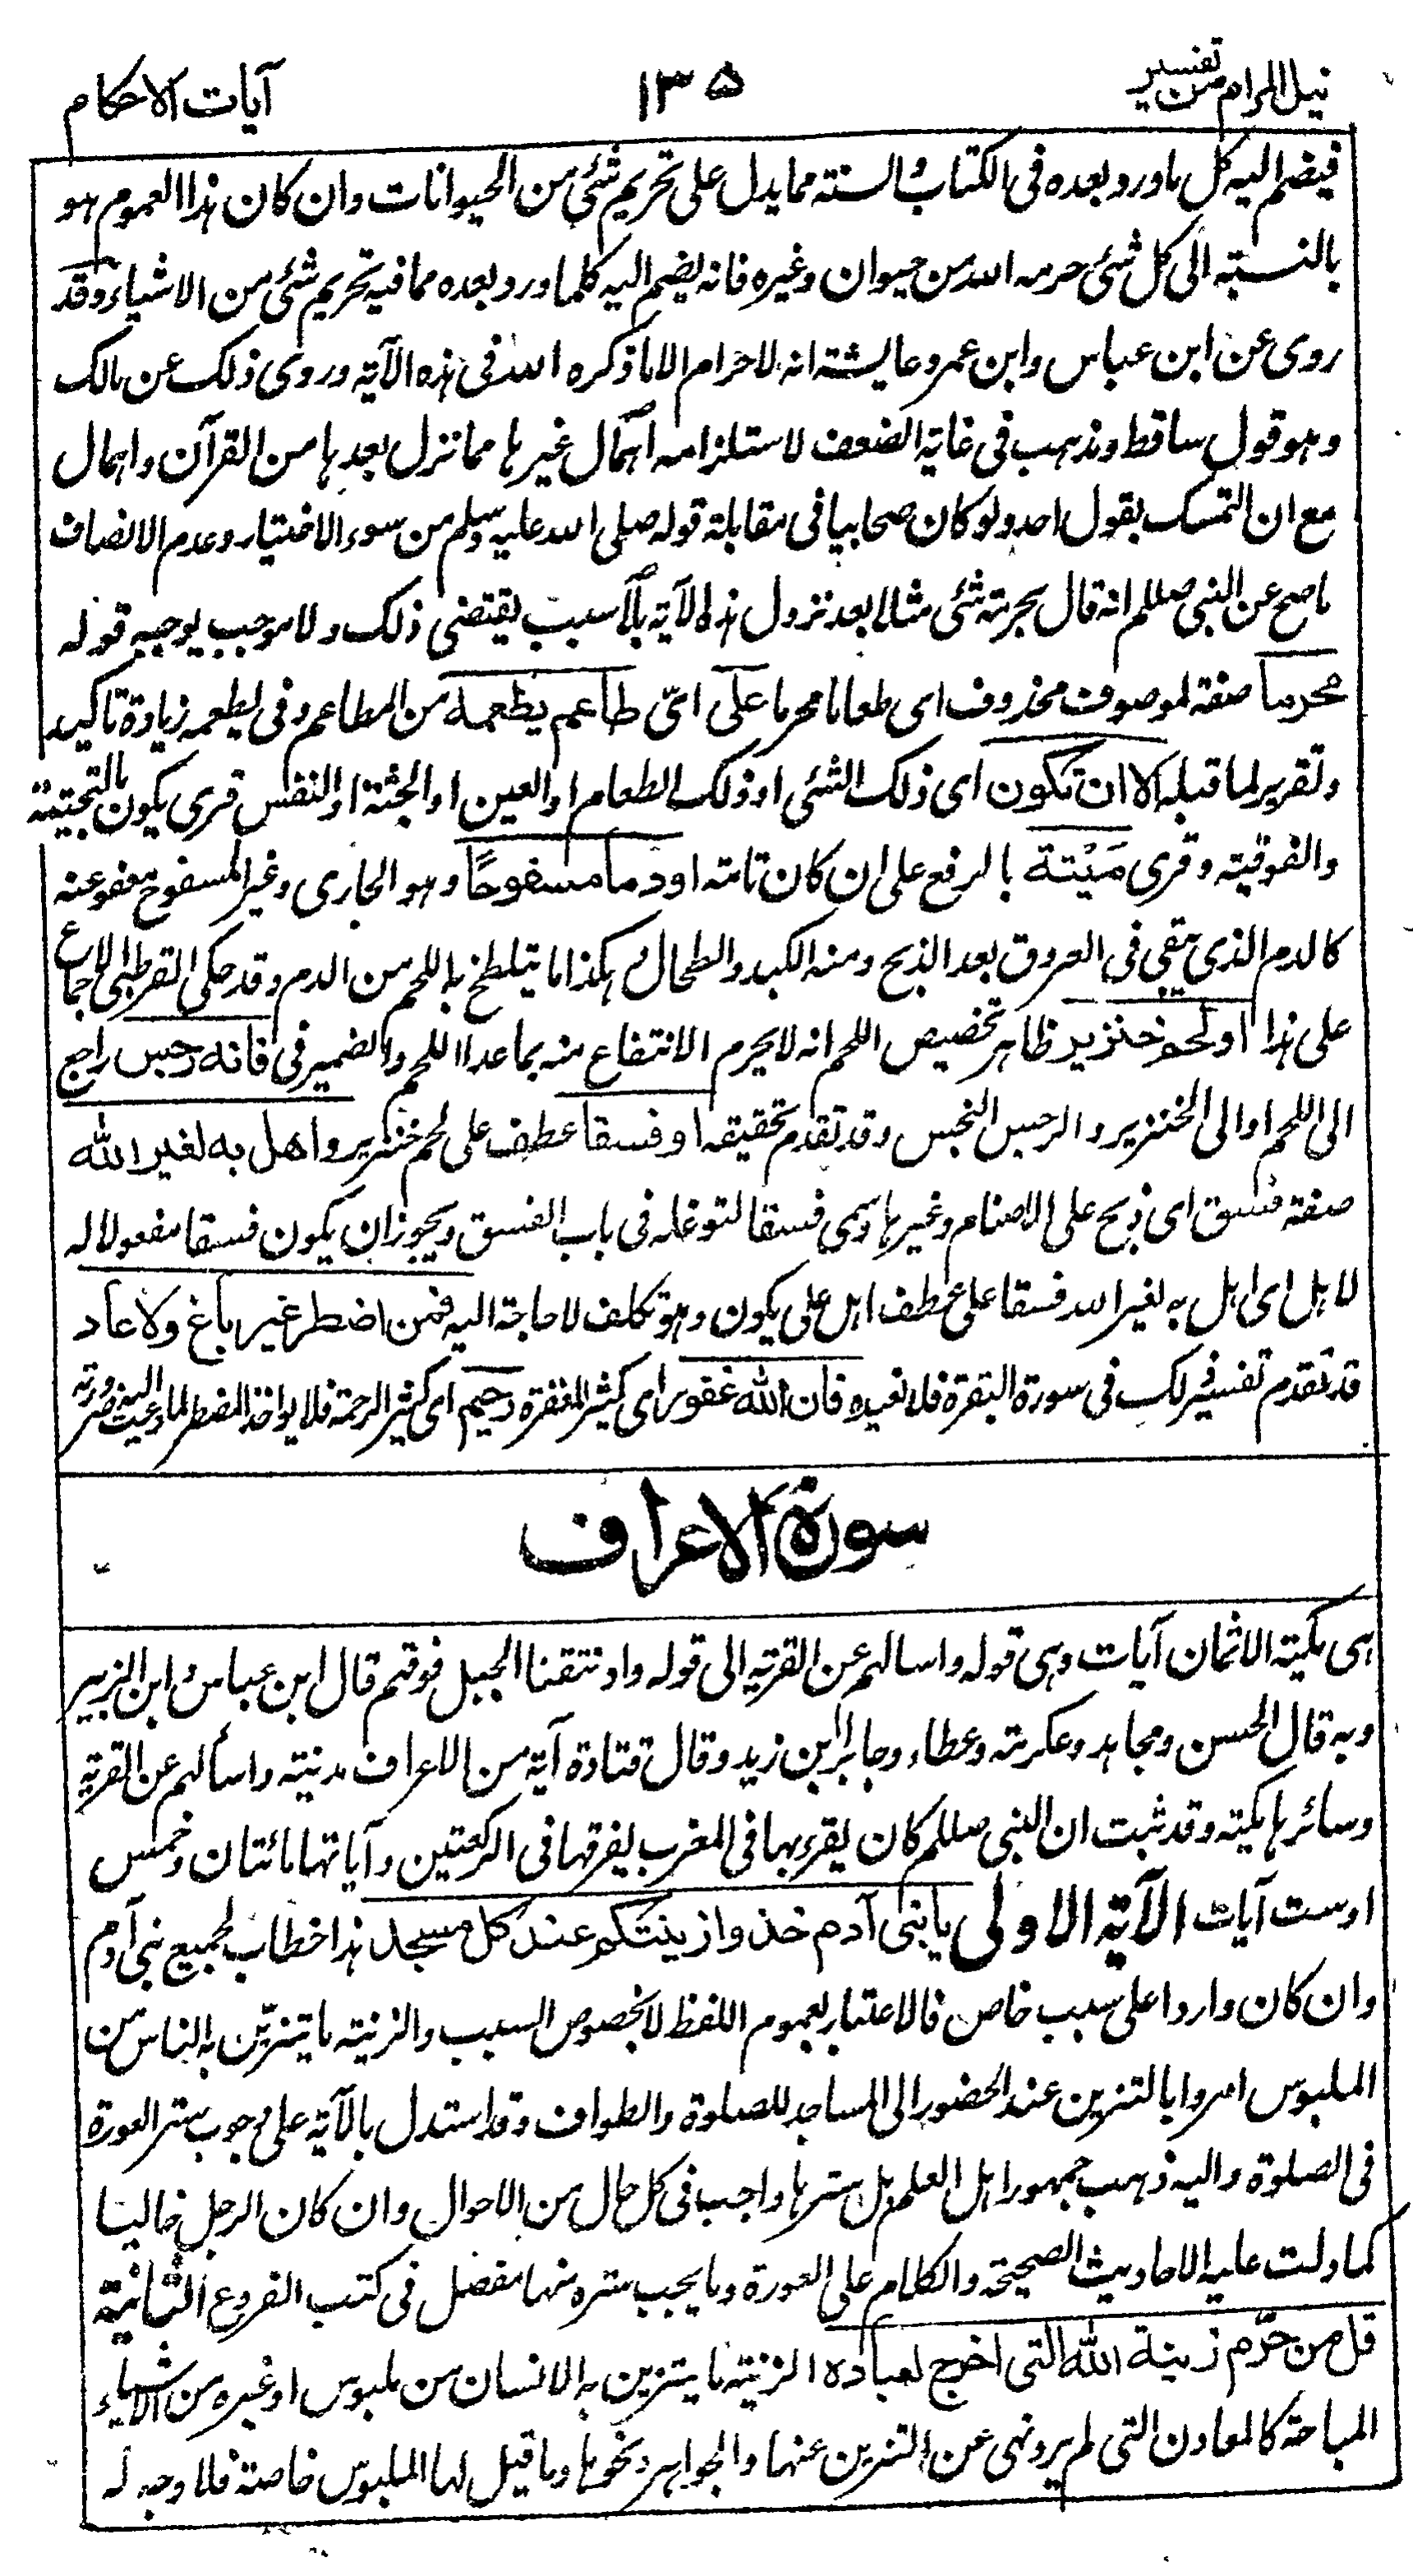 نيل المرام من تفسير
١٣٥
آيات الاحكام
فيضم اليه كل ما ورد بعده فى الكتاب والسنته مما يدل على تحريم شئ من الحيوانات وان كان هذا العموم هو
بالنسبته الى كل شئ حرمه الله من حيوان وغيره فانه يضم اليه كلما ورد بعده مما فيه تحريم شئ من الاشياء وقد
روى عن ابن عباس وابن عمر وعايشته انه لا حرام الا ما ذكره الله فى هذه الآية وروى ذلك عن مالك
وهو قول ساقط ومذهب فى غاية الضعف لاستلزامه اهمال غيرها مما نزل بعدها من القرآن واهمال
مع ان التمسك بقول احد ولو كان صحابيا فى مقابلة قوله صلى الله عليه وسلم من سوء الاختيار وعدم الانصاف
ما صح عن النبى صللم انه قال بحرمته شئ مثلا بعد نزول هذه الآية بلا سبب يقتضى ذلك ولا موجب يوجبه قوله
محرما صفته لموصوف محذوف اى طعاما محرما على اىّ طاعم يطعمه من المطاعم وفى يطعمه زيادة تاكيد
وتقرير لما قبله الا ان تكون اى ذلك الشئ او ذلك الطعام او العين او الجثة او النفس قرى يكون بالتحتية
والفوقيته وقرى مَيْتة بالرفع على ان كان تامته او دما مسفوحًا وهو الجارى وغير المسفوح معفو عنه
كالدم الذى يبقى فى العروق بعد الذبح ومنه الكبد والطحال وهكذا ما يتلطخ باللحم من الدم وقد حكى القرطبى الاجماع
على هذا او لحم خنزير ظاهر تخصيص اللحم انه لا يحرم الانتفاع منه بما عدا اللحم والضمير فى فانه رجس راجع
الى اللحم او الى الخنزير والرجس النجس وقد تقدم تحقيقه او فسقا عطف على لحم خنزير واهل به لغير الله
صفته فسق اى ذبح على الاصنام وغيرها وسمى فسقا لتوغله فى باب الفسق ويجوز ان يكون فسقا مفعولا له
لاهل اى اهل به لغير الله فسقا على عطف اهل على يكون وهو تكلف لا حاجة اليه فمن اضطر غير باغ ولا عاد
قد تقدم تفسير ذلك فى سورة البقرة فلا نعيده فان الله غفور اى كثير المغفرة رحيم اى كثير الرحمة فلا يواخذ المضطر لما دعت اليه ضرورته
سورة الاعراف
هى مكية الا ثمان آيات وهى قوله واسالهم عن القرية الى قوله واذ نتقنا الجبل فوقهم قال ابن عباس وابن الزبير
وبه قال الحسن ومجاهد وعكرمته وعطاء وجابر ابن زيد وقال قتادة آية من الاعراف مدنيته واسألهم عن القرية
وسائرها مكيته وقد ثبت ان النبى صللم كان يقرء بها فى المغرب يفرقها فى الركعتين وآياتها مائتان وخمس
او ست آيات الآية الاولى يا بنى آدم خذوا زينتكم عند كل مسجد هذا خطاب لجميع بنى آدم
وان كان واردا على سبب خاص فالاعتبار بعموم اللفظ لا بخصوص السبب والزينته ما يتزيّن به الناس من
الملبوس امروا بالتزين عند الحضور الى المساجد للصلوة والطواف وقد استدل بالآية على وجوب ستر العورة
فى الصلوة واليه ذهب جمهور اهل العلم بل سترها واجب فى كل حال من الاحوال وان كان الرجل خاليا
كما دلت عليه الاحاديث الصحيحة والكلام على العورة وما يجب ستره منها مفصل فى كتب الفروع الثانية
قل من حرّم زينة الله التى اخرج لعباده الزينته ما يتزين به الانسان من ملبوس او غيره من الاشياء
المباحة كالمعادن التى لم يرد نهى عن التزين عنها والجواهر ونحوها وما قيل لها الملبوس خاصته فلا وجه له